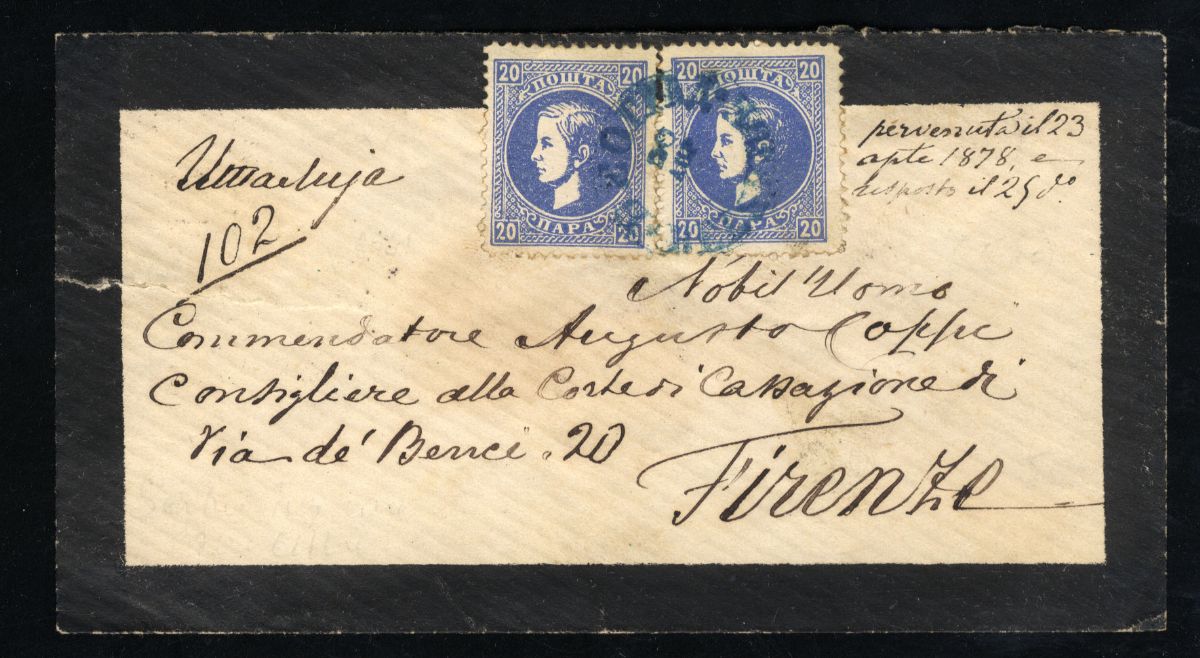 20 ПОШТА 20
20 ПАРА 20
20 ПОШТА 20
20 20
pervenuta il 23
aple 1878, e
risposto il 25 do.
102
Nobil Uomo
Commendatore Augusto Coppi
Consigliere alla Corte di Cassazione di
Via de' Benci . 20
Firenze